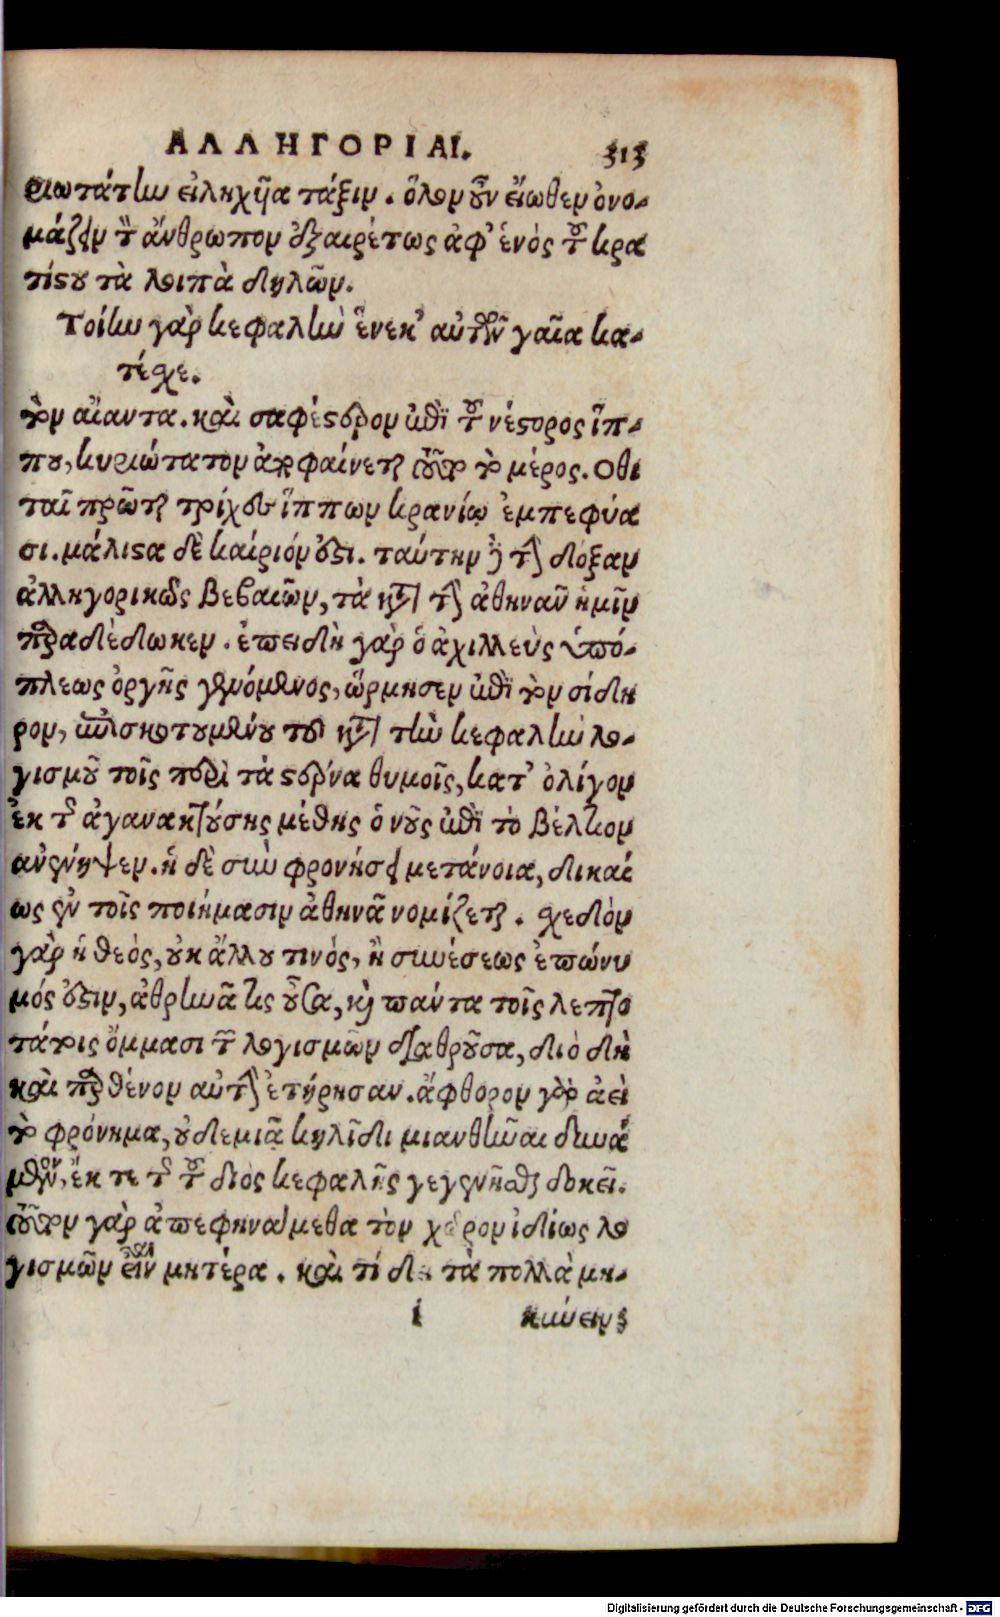 ΑΛΛΗΓΟΡΙΑΙ. 313
ριωτάτην εἰληχῆα τάξιν. ὅλον οὖν εἴωθεν ὀνο-
μάζειν τὸν ἄνθρωπον ἐξαιρέτως ἀφ' ἑνὸς τοῦ κρα
τίστου τὰ λοιπὰ δηλῶν.
Τοίην γὰρ κεφαλὴν ἕνεκ' αὐτῶν γαῖα κα-
τέσχε.
τὸν αἴαντα. καὶ σαφέστερον ἐπὶ τοῦ νέστορος ἵπ-
που, κυριώτατον ἀποφαίνεται τοῦτο τὸ μέρος. Οθι
ταῖ πρῶται τρίχες ἵππων κρανίῳ ἐμπεφύα
σι. μάλιστα δὲ καίριόν ἐστι. ταύτην δὲ τὴν δόξαν
ἀλληγορικῶς βεβαιῶν, τὰ κατὰ τὴν ἀθηνᾶν ἡμῖν
παραδέδωκεν. ἐπειδὴ γὰρ ὁ ἀχιλλεὺς ὑπό-
πλεως ὀργῆς γενόμενος, ὥρμησεν ἐπὶ τὸν σίδη
ρον, ἐπισκοτουμένου τοῦ κατὰ τὴν κεφαλὴν λο-
γισμοῦ τοῖς περὶ τὰ στέρνα θυμοῖς, κατ' ὀλίγον
ἐκ τῆς ἀγανακτούσης μέθης ὁ νοῦς ἐπὶ τὸ βέλτιον
ἀνένηψεν. ἡ δὲ σὺν φρονήσει μετάνοια, δικαί
ως ἐν τοῖς ποιήμασιν ἀθηνᾶ νομίζεται. σχεδὸν
γὰρ ἡ θεὸς, οὐκ ἄλλου τινός, ἢ συνέσεως ἐπώνυ
μός ἐστιν, ἀθρηνᾶ τις οὖσα, καὶ πάντα τοῖς λεπτο
τάτοις ὄμμασι τῶν λογισμῶν διαθροῦσα, διὸ δὴ
καὶ παρθένον αὐτὴν ἐτήρησαν. ἄφθορον γὰρ ἀεὶ
τὸ φρόνημα, οὐδεμιᾷ κηλῖδι μιανθῆναι δυνά
μενον, ἔκ τε τῆς τοῦ διὸς κεφαλῆς γεγενῆσθαι δοκεῖ.
τοῦτον γὰρ ἀπεφηνάμεθα τὸν χῶρον ἰδίως λο
γισμῶν εἶναι μητέρα. καὶ τί δεῖ τὰ πολλὰ μη-
i κύνειν;